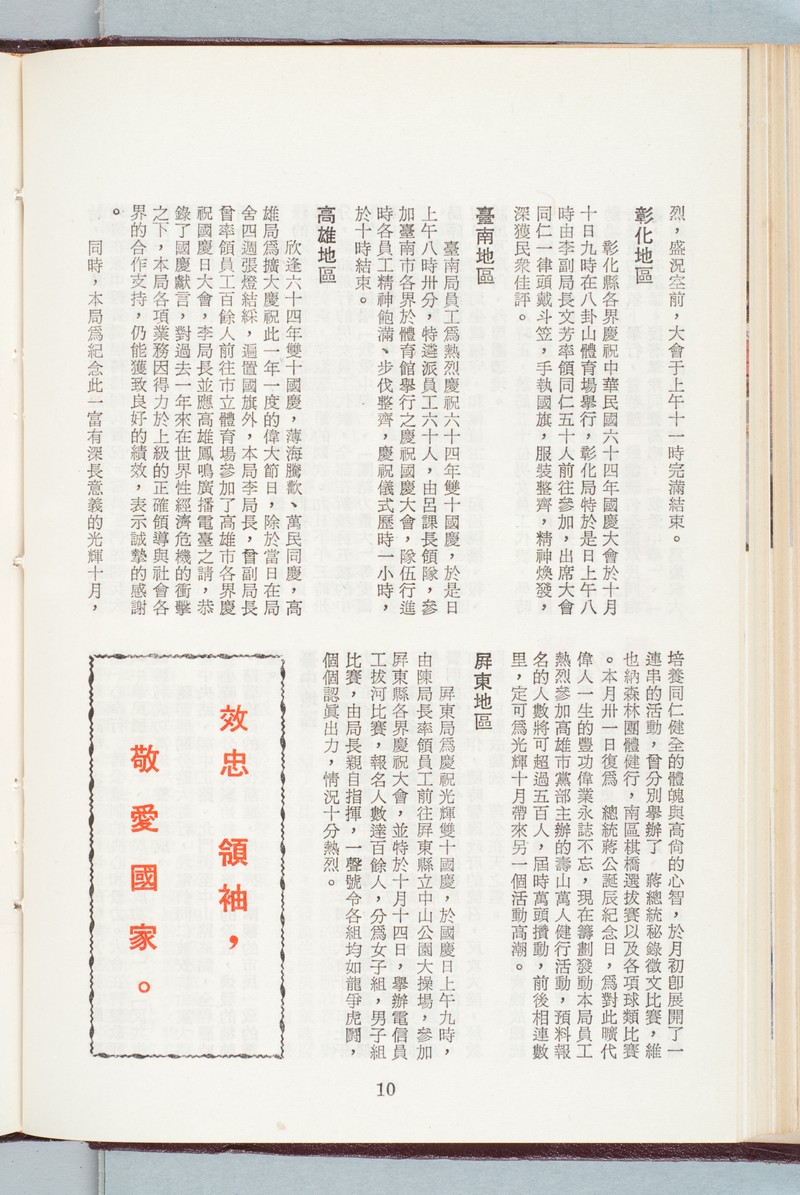 烈，盛況空前，大會于上午十一時完滿結束。
彰化地區
彰化縣各界慶祝中華民國六十四年國慶大會於十月
十日九時在八卦山體育場舉行，彰化局特於是日上午八
時由李副局長文芳率領同仁五十人前往參加，出席大會
同仁一律頭戴斗笠，手執國旗，服裝整齊，精神煥發，
深獲民衆佳評。
臺南地區
臺南局員工爲熱烈慶祝六十四年雙十國慶，於是日
上午八時卅分，特遴派員工六十人，由呂課長領隊，參
加臺南市各界於體育館舉行之慶祝國慶大會，隊伍行進
時各員工精神飽滿、步伐整齊，慶祝儀式歷時一小時，
於十時結束。
高雄地區
欣逢六十四年雙十國慶，薄海騰歡、萬民同慶，高
雄局爲擴大慶祝此一年一度的偉大節日，除於當日在局
舍四週張燈結綵，遍置國旗外，本局李局長，曾副局長
曾率領員工百餘人前往市立體育場參加了高雄市各界慶
祝國慶日大會，李局長並應高雄鳳鳴廣播電臺之請，恭
錄了國慶獻言，對過去一年來在世界性經濟危機的衝擊
之下，本局各項業務因得力於上級的正確領導與社會各
界的合作支持，仍能獲致良好的績效，表示誠摯的感謝
。
同時，本局爲紀念此一富有深長意義的光輝十月，
培養同仁健全的體魄與高尙的心智，於月初卽展開了一
連串的活動，曾分別舉辦了　蔣總統秘錄徵文比賽，維
也納森林團體健行，南區棋橋選拔賽以及各項球類比賽
。本月卅一日復爲　總統蔣公誕辰紀念日，爲對此曠代
偉人一生的豐功偉業永誌不忘，現在籌劃發動本局員工
熱烈參加高雄市黨部主辦的壽山萬人健行活動，預料報
名的人數將可超過五百人，屆時萬頭攢動，前後相連數
里，定可爲光輝十月帶來另一個活動高潮。
屛東地區
屛東局爲慶祝光輝雙十國慶，於國慶日上午九時，
由陳局長率領員工前往屛東縣立中山公園大操場，參加
屛東縣各界慶祝大會，並特於十月十四日，舉辦電信員
工拔河比賽，報名人數達百餘人，分爲女子組，男子組
比賽，由局長親自指揮，一聲號令各組均如龍爭虎鬪，
個個認眞出力，情況十分熱烈。
效忠　領袖，
敬愛國家。
10